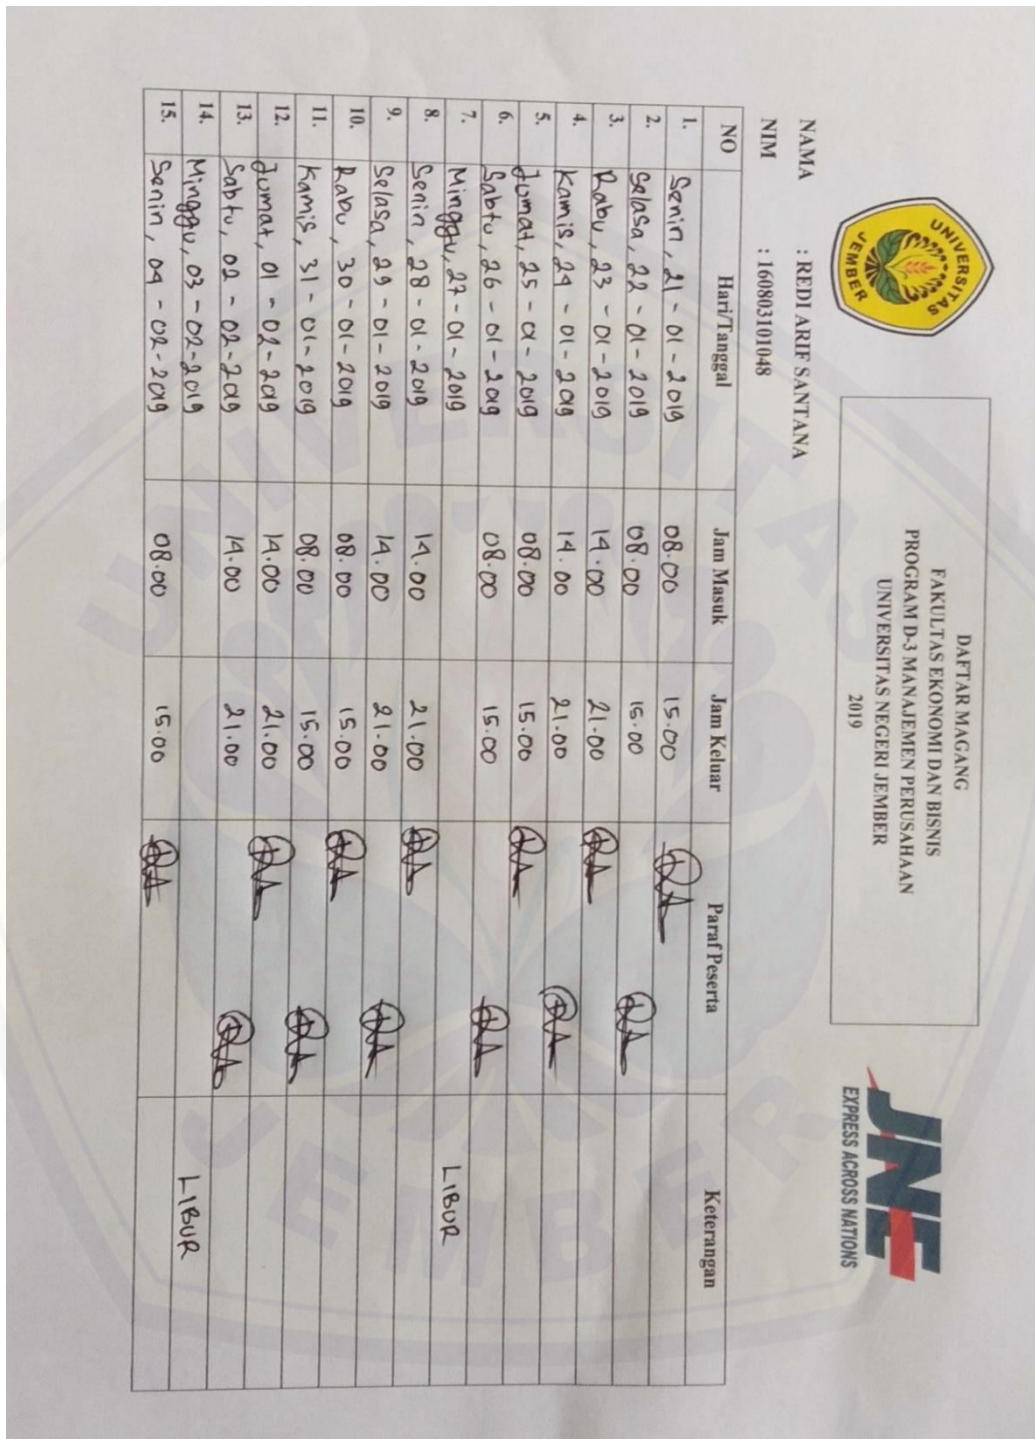 UNIVERSITAS
JEMBER
DAFTAR MAGANG
FAKULTAS EKONOMI DAN BISNIS
PROGRAM D-3 MANAJEMEN PERUSAHAAN
UNIVERSITAS NEGERI JEMBER
2019
JNE
EXPRESS ACROSS NATIONS
NAMA : REDI ARIF SANTANA
NIM : 160803101048
NO Hari/Tanggal Jam Masuk Jam Keluar Paraf Peserta Keterangan
1. Senin, 21-01-2019 08.00 15.00
2. Selasa, 22-01-2019 08.00 15.00
3. Rabu, 23-01-2019 14.00 21.00
4. Kamis, 24-01-2019 14.00 21.00
5. Jumat, 25-01-2019 08.00 15.00
6. Sabtu, 26-01-2019 08.00 15.00
7. Minggu, 27-01-2019 LIBUR
8. Senin, 28-01-2019 14.00 21.00
9. Selasa, 29-01-2019 14.00 21.00
10. Rabu, 30-01-2019 08.00 15.00
11. Kamis, 31-01-2019 08.00 15.00
12. Jumat, 01-02-2019 14.00 21.00
13. Sabtu, 02-02-2019 14.00 21.00
14. Minggu, 03-02-2019 LIBUR
15. Senin, 04-02-2019 08.00 15.00
UNIVERSITAS
JEMBER